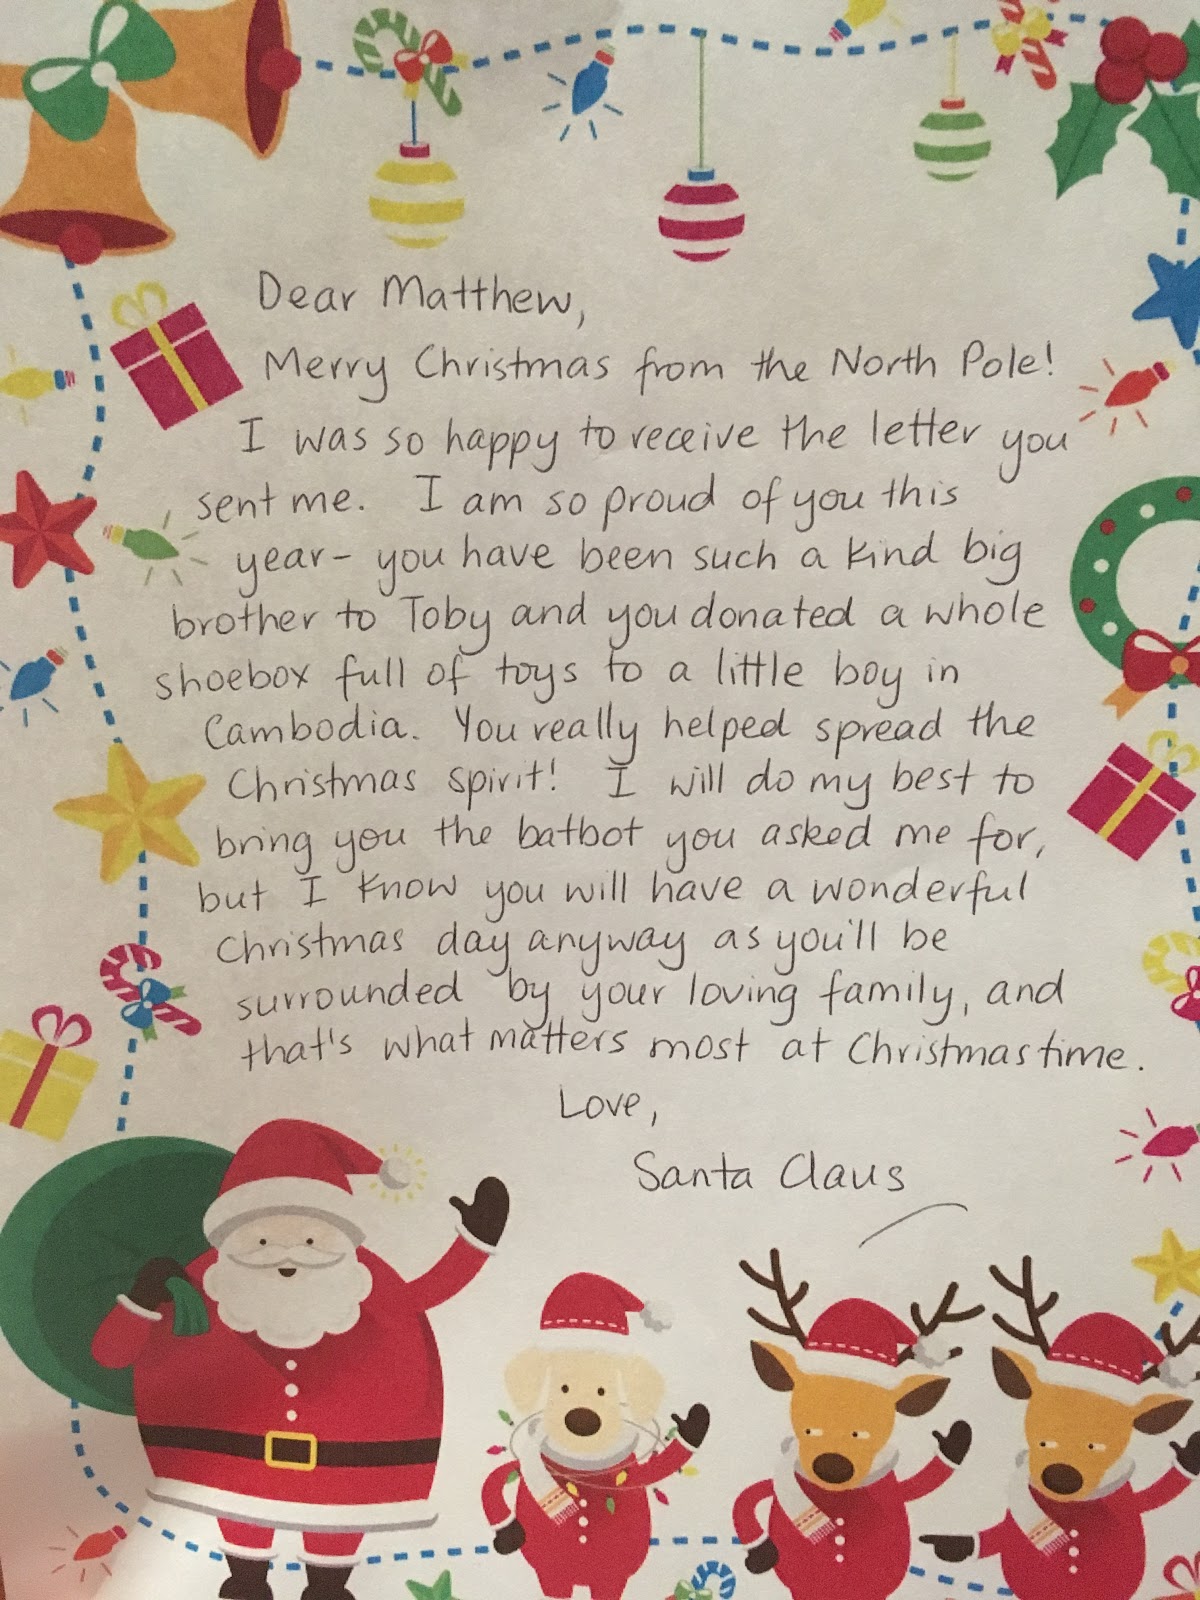 Dear Matthew,
Merry Christmas from the North Pole!
I was so happy to receive the letter you
sent me. I am so proud of you this
year- you have been such a kind big
brother to Toby and you donated a whole
shoebox full of toys to a little boy in
Cambodia. You really helped spread the
Christmas spirit! I will do my best to
bring you the batbot you asked me for,
but I know you will have a wonderful
Christmas day anyway as you'll be
surrounded by your loving family, and
that's what matters most at Christmastime.
Love,
Santa Claus